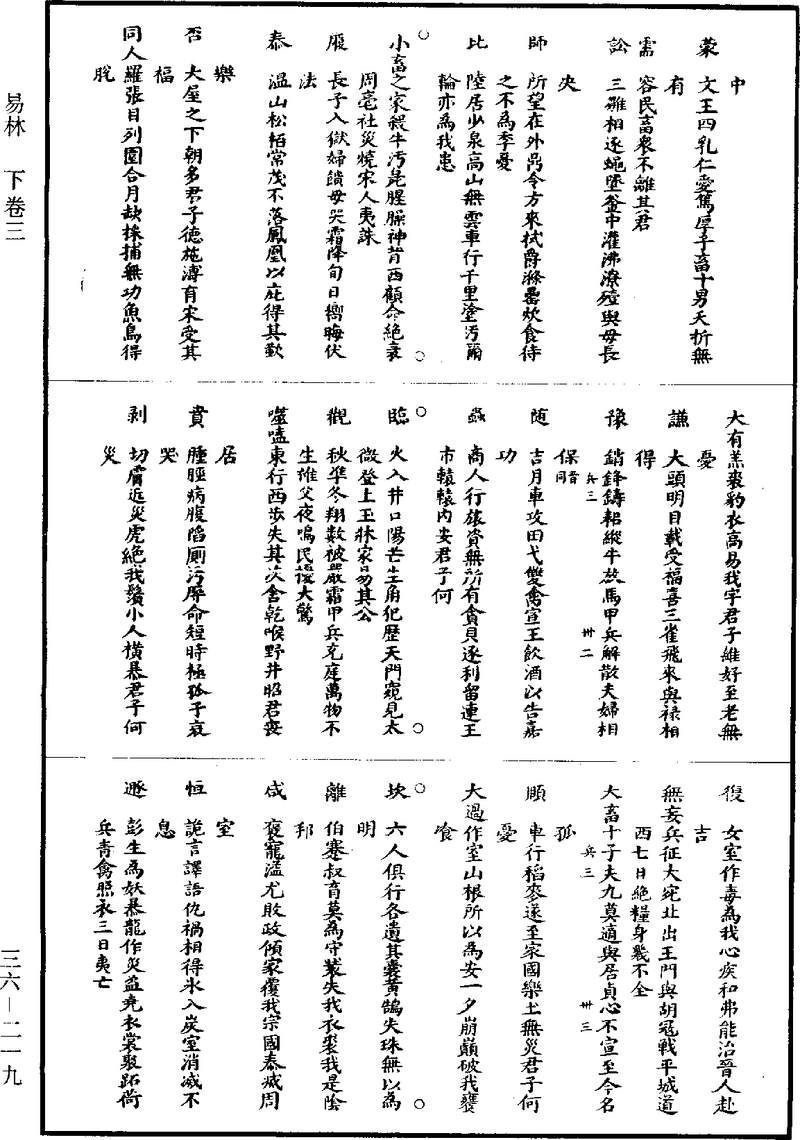 中
蒙　文王四乳仁愛篤厚子畜十男夭折無
有
需　容民畜衆不離其君
訟　三雞相逐蠅墜釜中灌沸潦殪與母長
央
師　所望在外鼎令方來拭爵滌罍炊食待
之不為季憂
比　陸居少泉高山無雲車行千里塗污爾
輪亦為我患
小畜之家餵牛污彘腥臊神背西顧命絕衰
周亳社災燒宋人夷誅
履　長子入獄婦饋母哭霜降旬日嚮晦伏
法
泰　溫山松栢常茂不落鳳凰以庇得其歡
樂
否　大屋之下朝多君子德施溥育宋受其
福
同人羅張目列圍合月缺採捕無功魚鳥得
脫
大有羔裘豹衣高易我宇君子維好至老無
憂
謙　大頭明目載受福喜三雀飛來與祿相
得
豫　銷鋒鑄耜縱牛放馬甲兵解散夫婦相
保
兵三　卅二
随　吉月車攻田弋雙禽宣王飲酒以告嘉
功
蠱　商人行旅資無所有貪貝逐利留連王
市轅轅內安君子何
臨　火入井口陽芒生角犯歷天門窺見太
微登上玉牀家易其公
觀　秋隼冬翔數被嚴霜甲兵充庭萬物不
生雄父夜鳴民擾大驚
噬嗑東行西步失其次舍乾喉野井昭君喪
居
賁　腫脛病腹陷厠污辱命短時極孤子哀
哭
剥　切膚近災虎絕我鬚小人橫暴君子何
災
復　女室作毒為我心疾和弗能治晉人赴
吉
無妄兵征大宛北出玉門與胡冦戰平城道
西七日絕糧身幾不全
大畜十子夫九莫適與居貞心不宣至今名
孤
兵三　卅三
頤　車行稻麥遂至家國樂土無災君子何
憂
大過作室山根所以為安一夕崩巔破我甕
飡
坎　六人俱行各遺其囊黃鵠失珠無以為
明
離　伯蹇叔盲莫為守裝失我衣裘我是陰
邦
咸　襃寵溫尤敗政傾家覆我宗國秦滅周
室
恒　詭言譯語仇禍相得氷入炭室消滅不
息
遯　彭生為妖暴龍作災盜堯衣裳聚跖荷
兵青禽照衣三日夷亡
易林　下卷三
三六—二一九